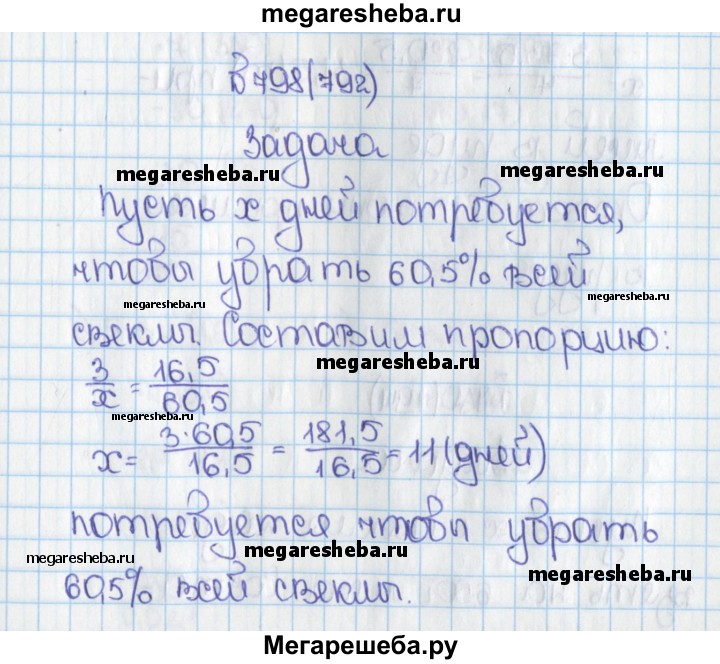 megaresheba.ru
В 798(792)
Задача
megaresheba.ru
Пусть x дней потребуется,
чтобы убрать 60,5% всей
megaresheba.ru
свеклы. Составим пропорцию:
megaresheba.ru
3/x = 16,5/60,5
megaresheba.ru
x = 3·60,5/16,5 = 181,5/16,5 = 11 (дней)
потребуется чтобы убрать
megaresheba.ru megaresheba.ru
megaresheba.ru
60,5% всей свеклы.
Мегарешеба.ру